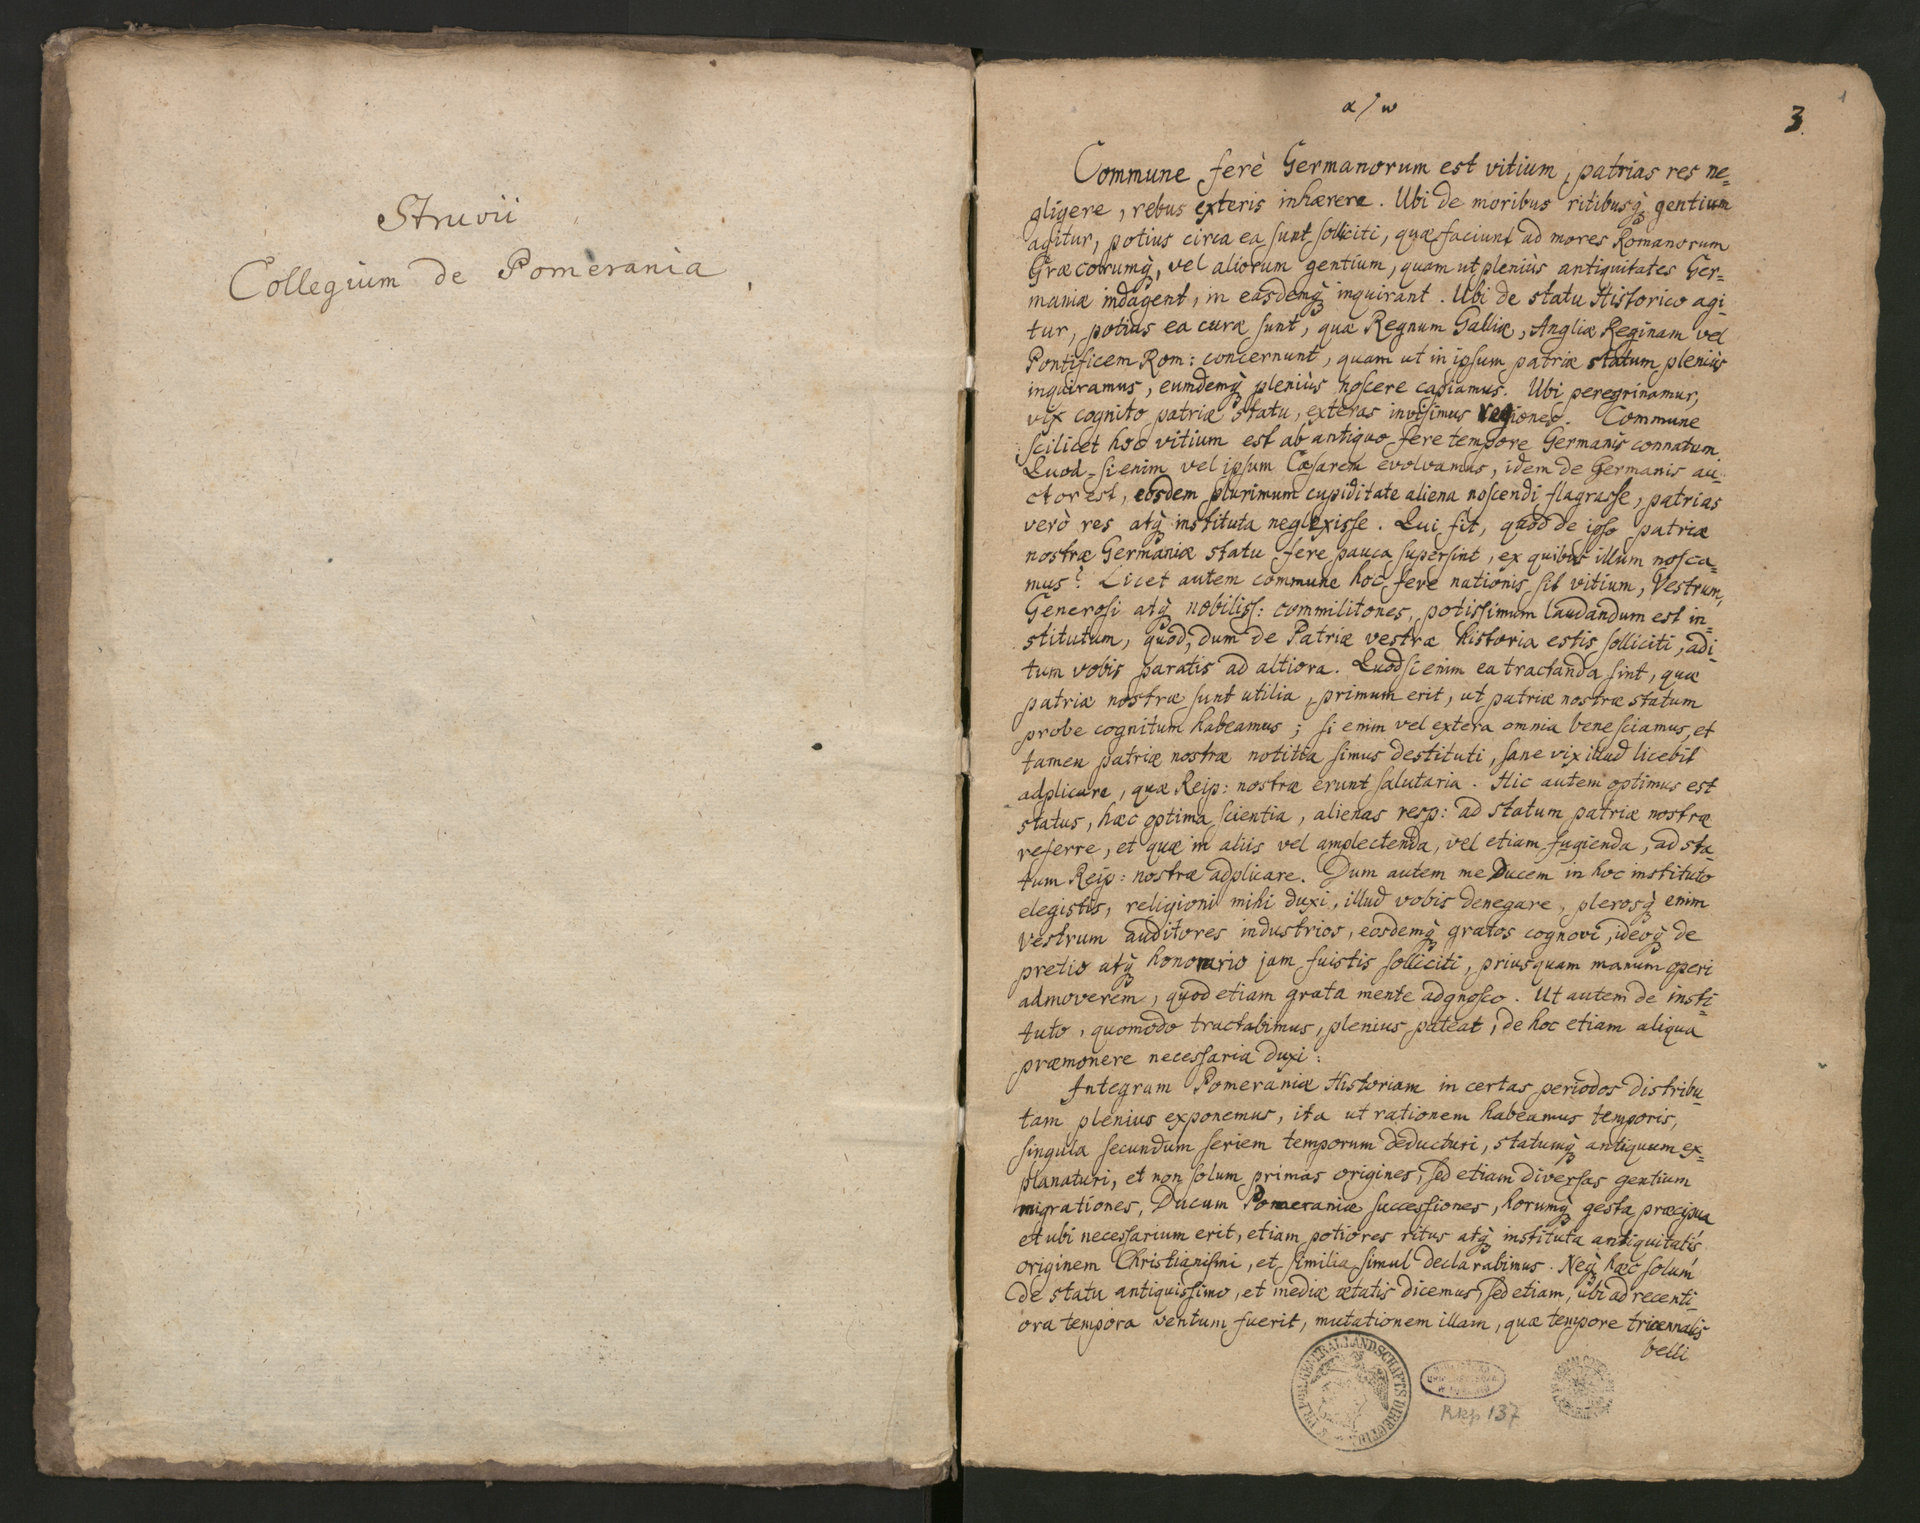 Struvii
Collegium de Pomerania
α / ω
3
1
Commune ferè Germanorum est vitium, patrias res ne=
gligere, rebus exteris inhærere. Ubi de moribus ritibusq; gentium
agitur, potius circa ea sunt solliciti, quæ faciunt ad mores Romanorum
Græcorumq;, vel aliorum gentium, quam ut pleniùs antiquitates Ger=
maniæ indagent, in easdemq; inquirant. Ubi de statu Historico agi=
tur, potius ea curæ sunt, quæ Regnum Galliæ, Angliæ Reginam vel
Pontificem Rom: concernunt, quam ut in ipsum patriæ statum pleniùs
inquiramus, eumdemq; pleniùs noscere capiamus. Ubi peregrinamur,
vix cognito patriæ statu, exteras invisimus regiones. Commune
scilicet hoc vitium est ab antiquo fere tempore Germanis connatum.
Quod si enim vel ipsum Cæsarem evolvamus, idem de Germanis au=
ctor est, eosdem plurimum cupiditate aliena noscendi flagrasse, patrias
verò res atq; instituta neglexisse. Qui fit, quod de ipso patriæ
nostræ Germaniæ statu fere pauca supersint, ex quibus illum nosca=
mus? Licet autem commune hoc fere nationis sit vitium, Vestrum,
Generosi atq; nobiliss: commilitones, potissimum laudandum est in=
stitutum, quod, dum de Patriæ vestræ historia estis solliciti, adi=
tum vobis paratis ad altiora. Quodsi enim ea tractanda sint, quæ
patriæ nostræ sunt utilia, primum erit, ut patriæ nostræ statum
probe cognitum habeamus; si enim vel extera omnia bene sciamus, et
tamen patriæ nostræ notitia simus destituti, sane vix illud licebit
adplicare, quæ Reip: nostræ erunt salutaria. Hic autem optimus est
status, hæc optima scientia, alienas resp: ad statum patriæ nostræ
referre, et quæ in aliis vel amplectenda, vel etiam fugienda, ad sta=
tum Reip: nostræ adplicare. Dum autem me Ducem in hoc instituto
elegistis, religioni mihi duxi, illud vobis denegare, plerosq; enim
vestrum auditores industrios, eosdemq; gratos cognovi, ideoq; de
pretio atq; honorario jam fuistis solliciti, priusquam manum operi
admoverem, quod etiam grata mente adgnosco. Ut autem de insti=
tuto, quomodo tractabimus, plenius pateat, de hoc etiam aliqua
præmonere necessaria duxi:
Integram Pomeraniæ Historiam in certas periodos distribu=
tam plenius exponemus, ita ut rationem habeamus temporis,
singula secundum seriem temporum deducturi, statumq; antiquum ex=
planaturi, et non solum primas origines, sed etiam diversas gentium
migrationes, Ducum Pomeraniæ successiones, horumq; gesta præcipua
et ubi necessarium erit, etiam potiores ritus atq; instituta antiquitatis
originem Christianismi, et similia simul declarabimus. Neq; hæc solum
de statu antiquissimo, et mediæ ætatis dicemus, sed etiam, ubi ad recenti=
ora tempora ventum fuerit, mutationem illam, quæ tempore tricennalis
belli
Rkp 137